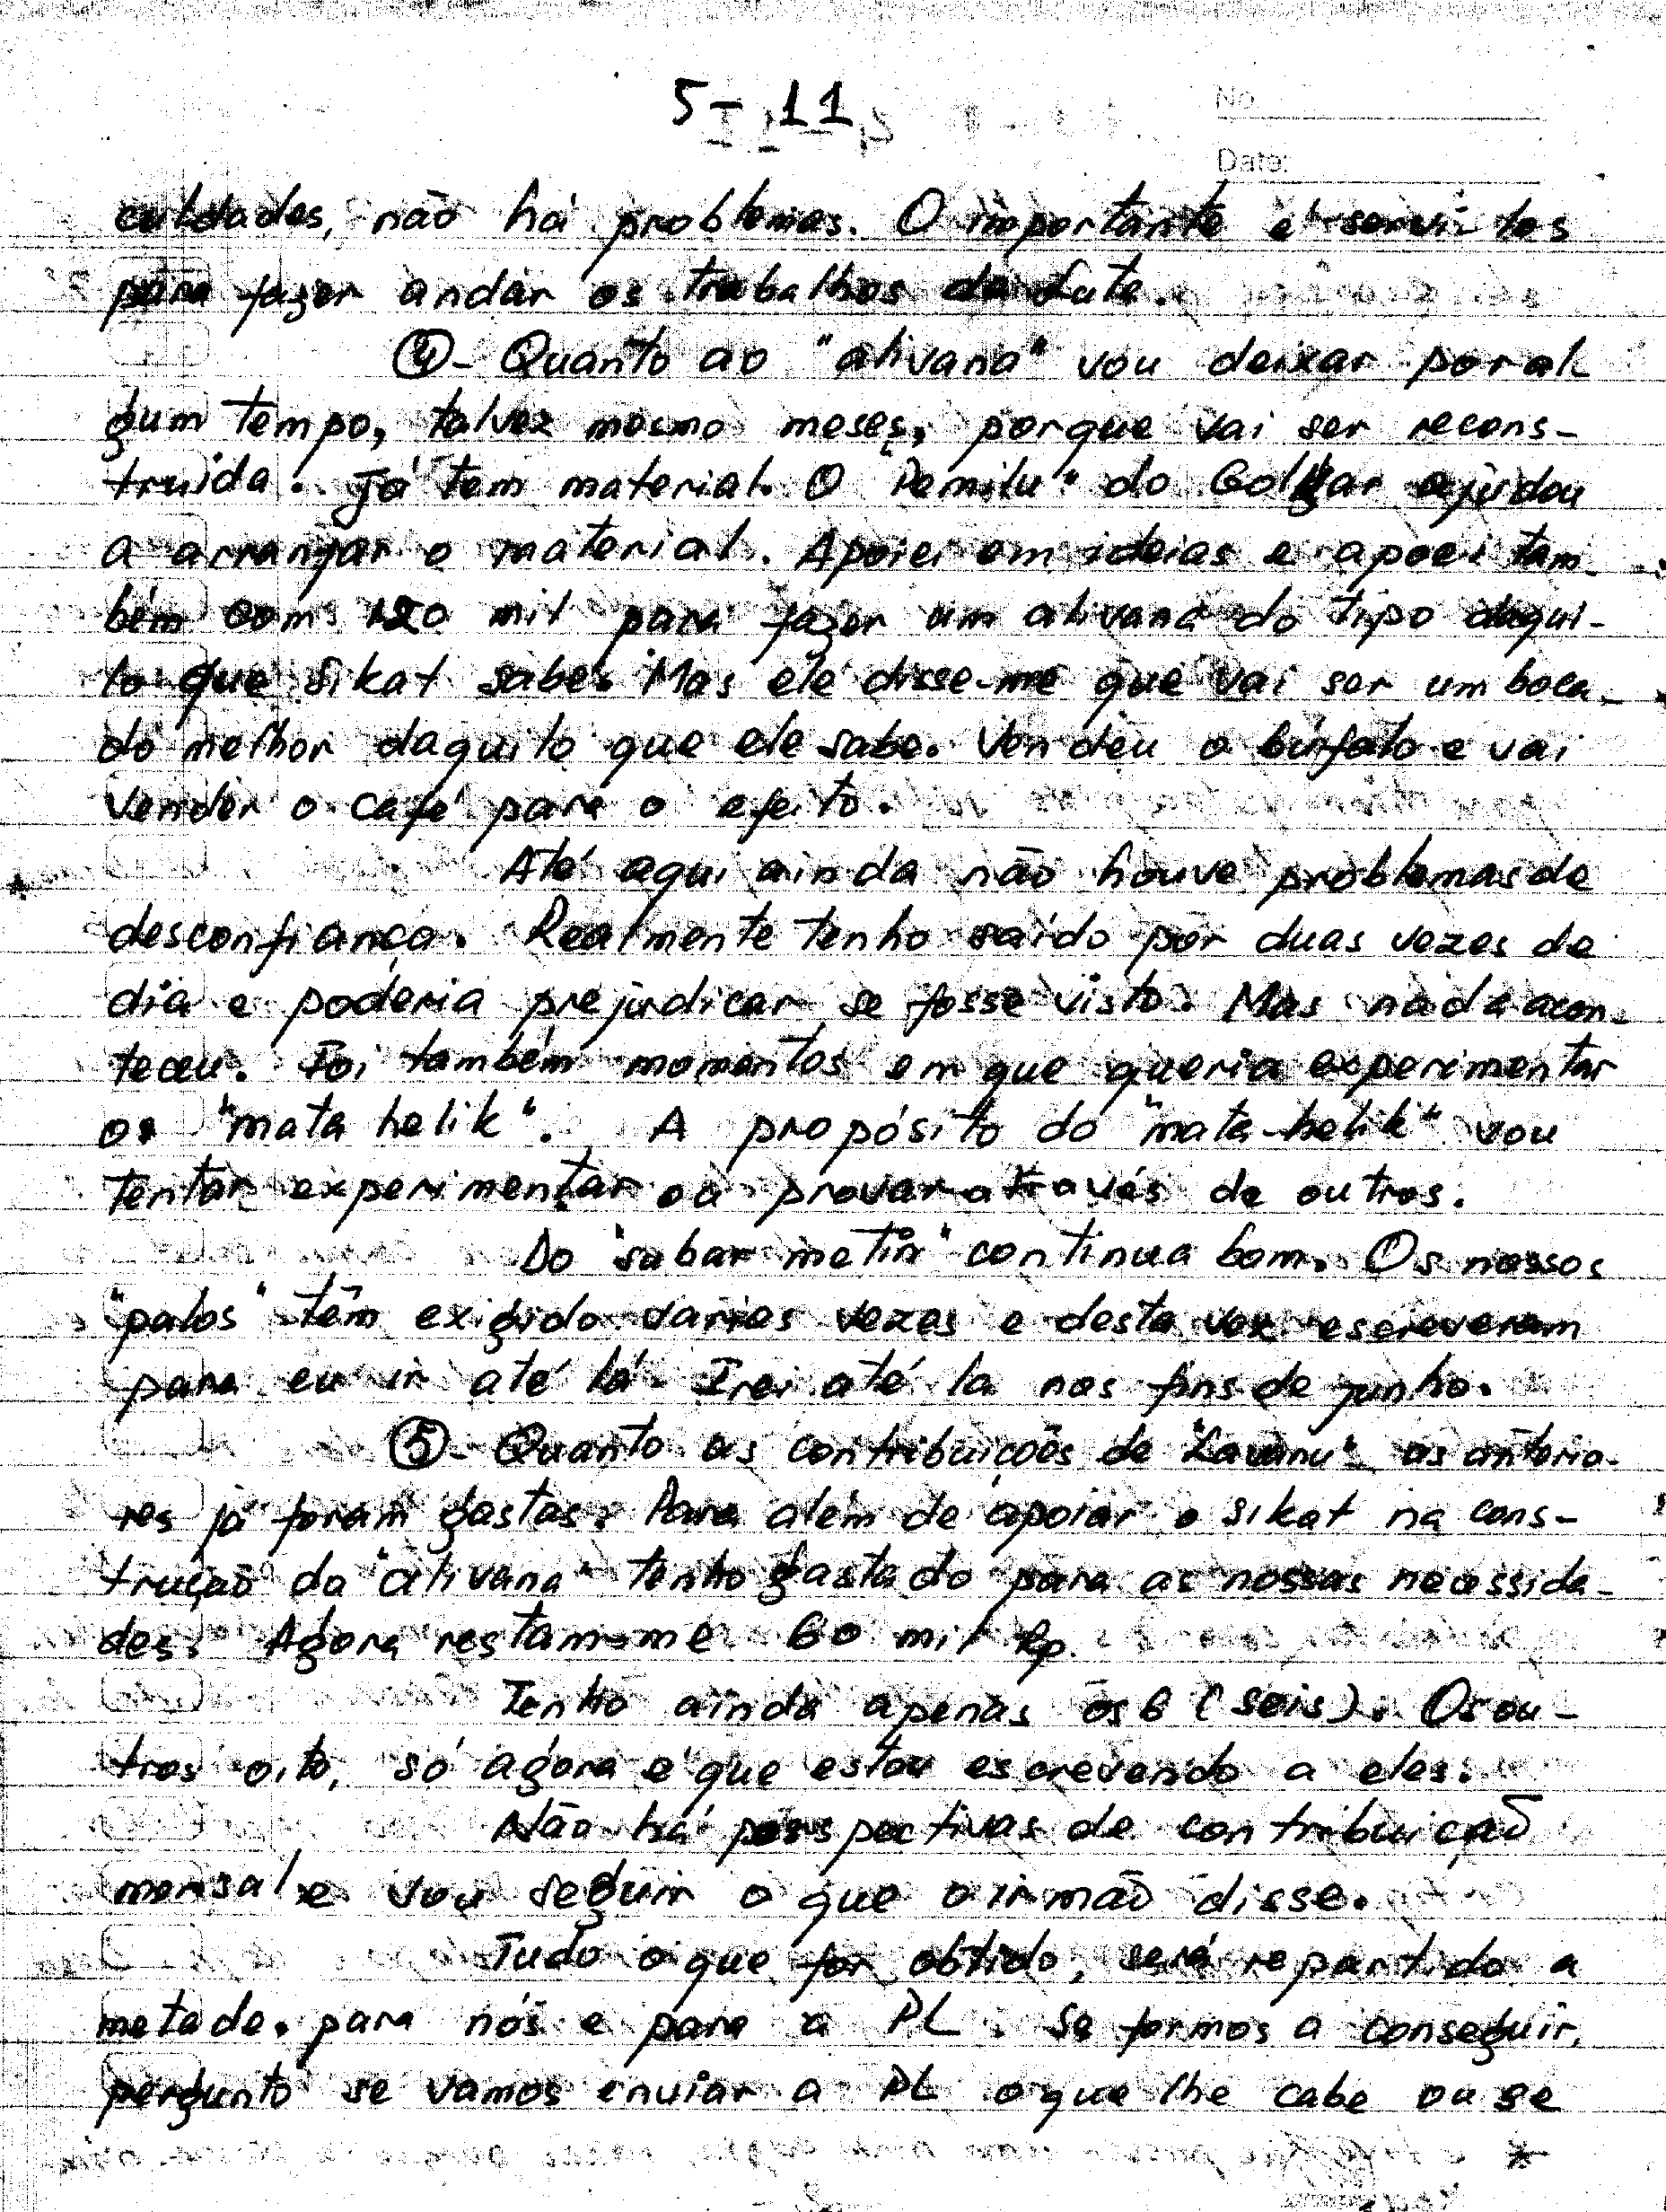 5-11
No.
Date:
culdades, não há problemas. O importante é servi-los
para fazer andar os trabalhos da Luta.
④- Quanto ao "ativana" vou deixar por al
gum tempo, talvez mesmo meses, porque vai ser recons-
truida. Já tem material. O Pemilu" do Golkar ajudou
a arranjar o material. Apoiei em ideias e apoei tam-
bém com 120 mil para fazer um alivana do tipo daqui-
lo que Sikat sabe. Mas ele disse-me que vai ser um boca-
do melhor daquilo que ele sabe. Vendeu o búfalo e vai
vender o café para o efeito.
Até aqui ainda não houve problemas de
desconfiança. Realmente tenho saído por duas vezes de
dia e poderia prejudicar se fosse visto. Mas nada acon-
teceu. Foi também momentos em que queria experimentar
os "mata helik". A propósito do "mata-helik" vou
tentar experimentar ou provar através de outros.
Do "sabar metin" continua bom. Os nossos
"palos" têm exigido varias vezes e desta vez escreveram
para eu ir até lá. Irei até la nos fins de junho.
⑤- Quanto as contribuições de "Lavanu" as anterio-
res já foram gastas. Para além de apoiar o sikat na cons-
trução da "alivana" tenho gastado para as nossas necessida-
des. Agora restam-me 60 mil Rp.
Tenho ainda apenas os 6 (seis). Os ou-
tros oito, só agora é que estou escrevendo a eles.
Não há perspectivas de contribuição
mensal e vou seguir o que o irmão disse.
Tudo o que for obtido, será repartido a
metade. para nós e para a PL. Se formos a conseguir,
pergunto se vamos enviar a PL o que lhe cabe ou se